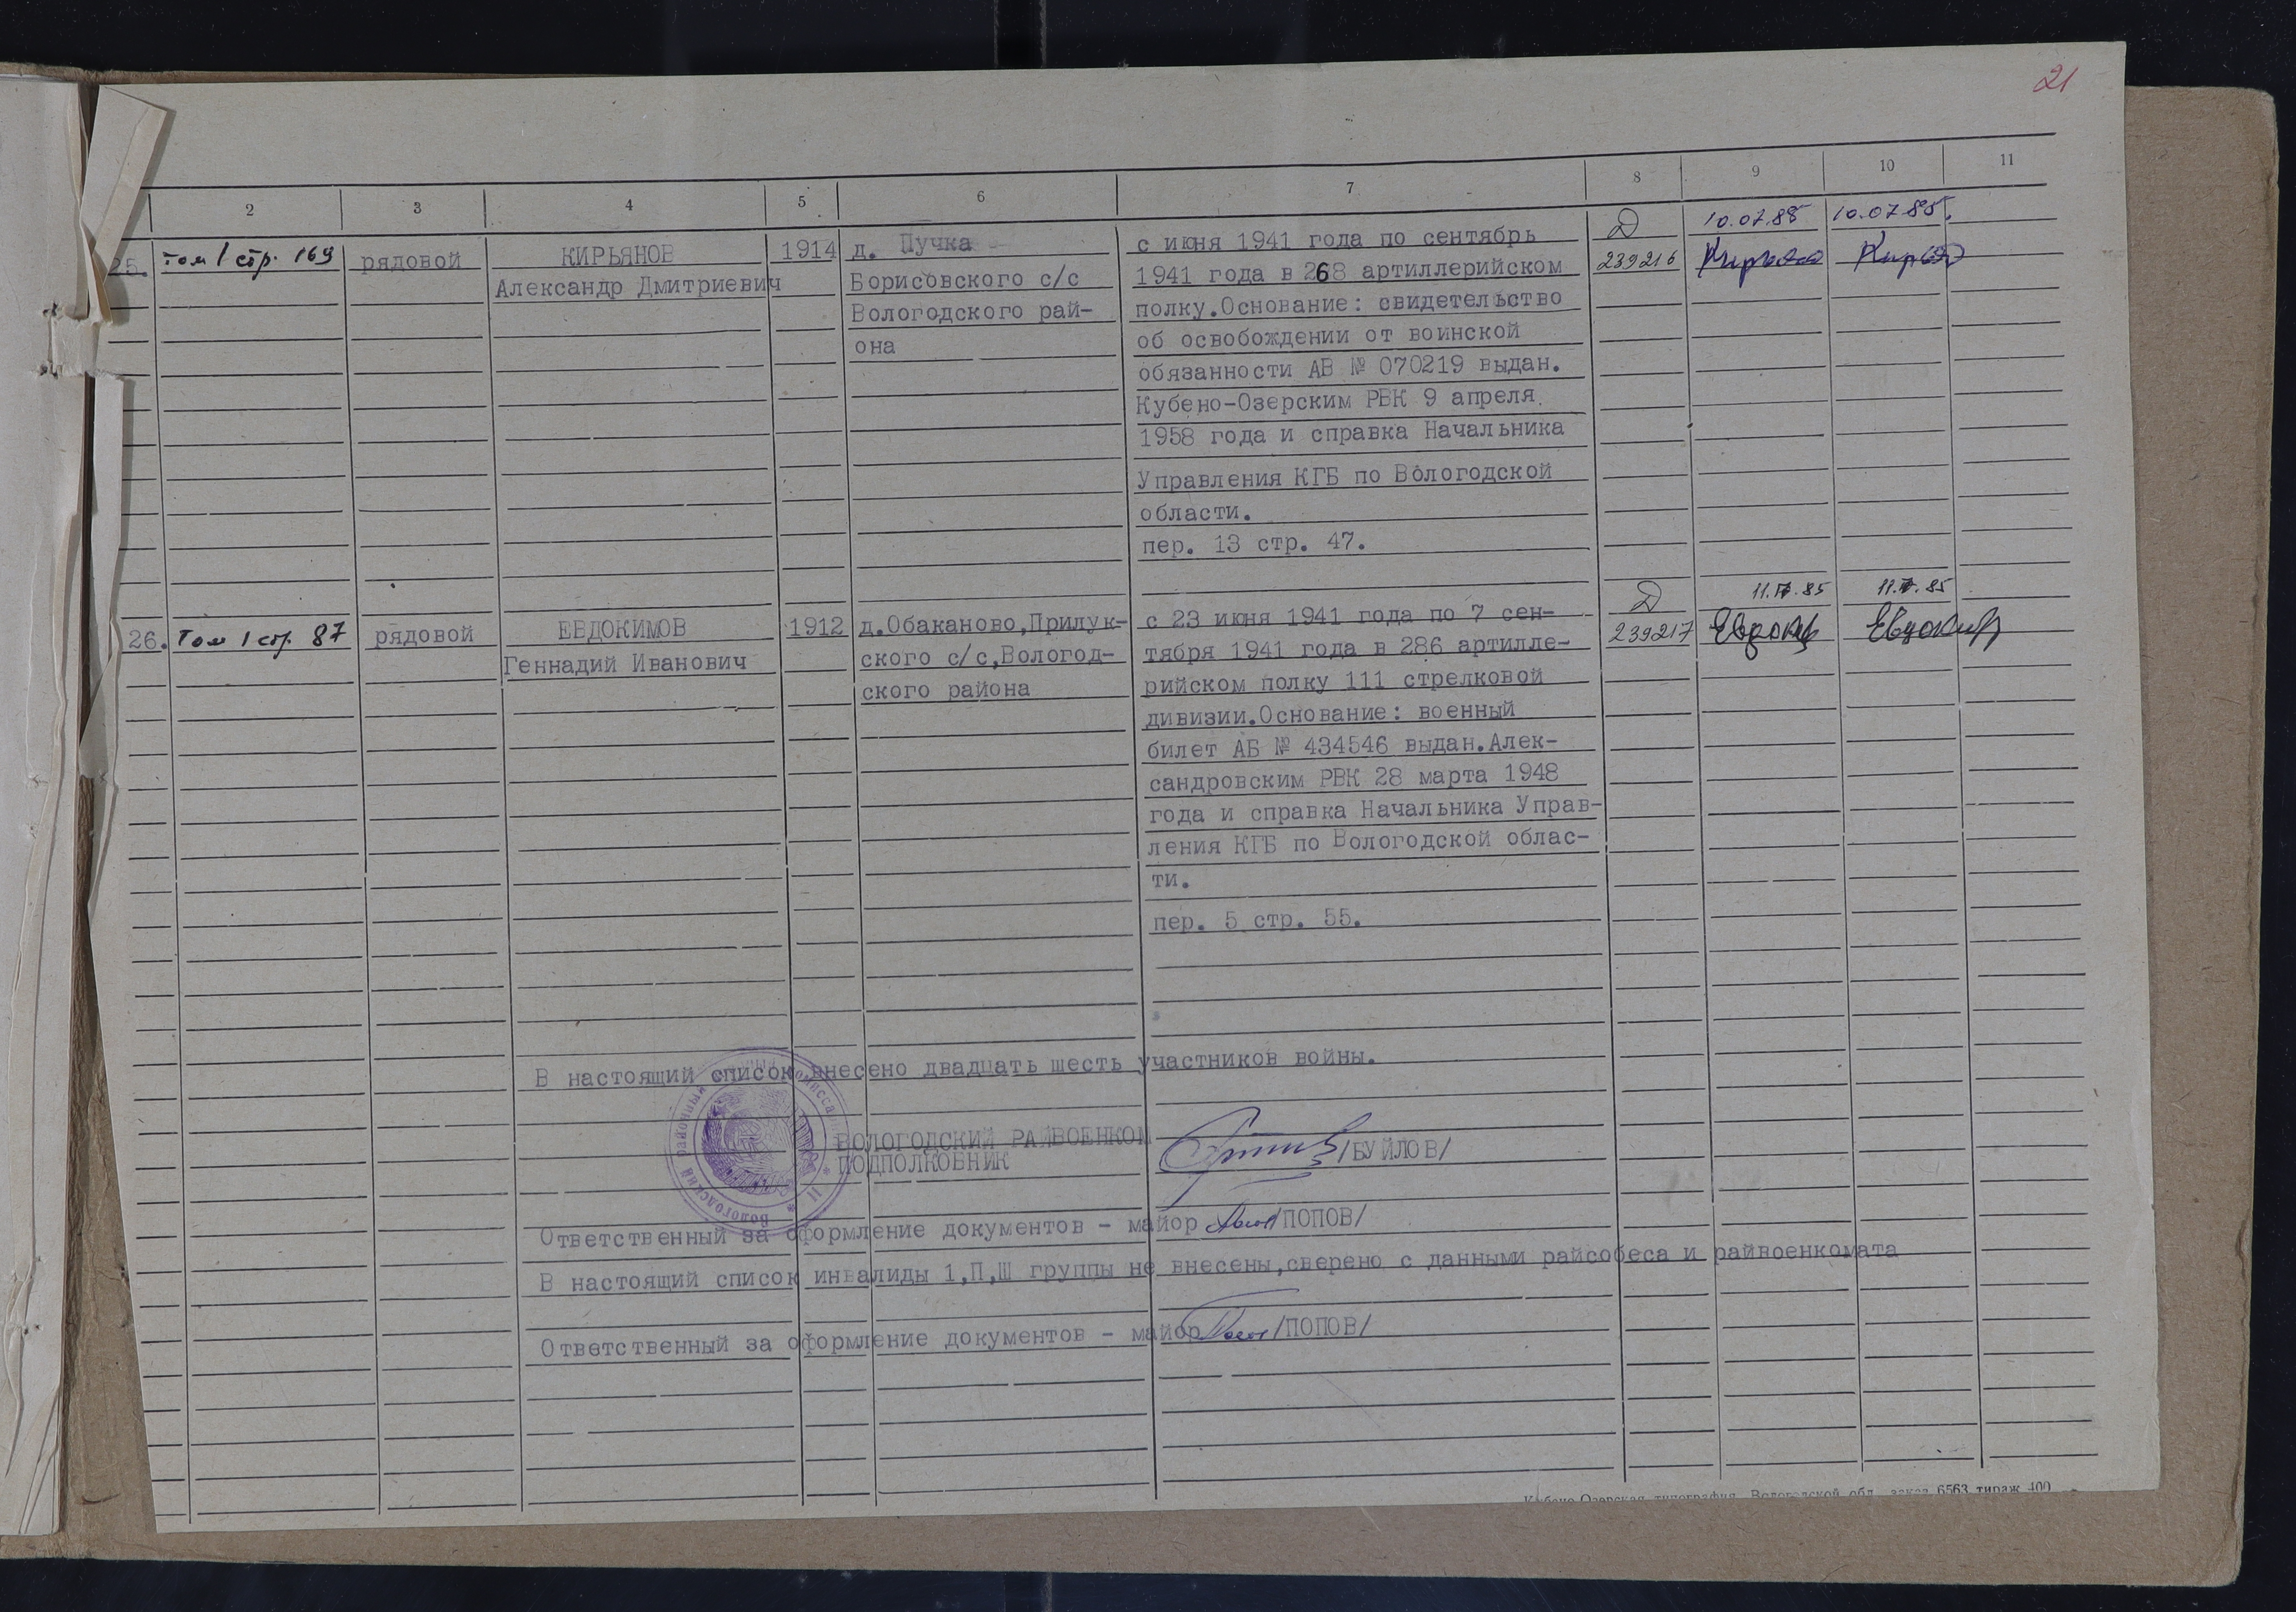 21
2 3 4 5 6 7 8 9 10 11
25. том 1 стр. 169 рядовой КИРЬЯНОВ 1914 д. Пучка с июня 1941 года по сентябрь Д 10.07.85 10.07.85.
Александр Дмитриевич Борисовского с/с 1941 года в 268 артиллерийском 239216
Вологодского рай- полку.Основание: свидетельство
она об освобождении от воинской
обязанности АВ № 070219 выдан.
Кубено-Озерским РВК 9 апреля
1958 года и справка Начальника
Управления КГБ по Вологодской
области.
пер. 13 стр. 47.
26. Том 1 стр. 87 рядовой ЕВДОКИМОВ 1912 д.Обаканово,Прилук- с 23 июня 1941 года по 7 сен- Д 11.IV.85 11.IV.85
Геннадий Иванович ского с/с,Вологод- тября 1941 года в 286 артилле- 239217
ского района рийском полку 111 стрелковой
дивизии.Основание: военный
билет АБ № 434546 выдан.Алек-
сандровским РВК 28 марта 1948
года и справка Начальника Управ-
ления КГБ по Вологодской облас-
ти.
пер. 5 стр. 55.
В настоящий список внесено двадцать шесть участников войны.
ВОЛОГОДСКИЙ РАЙВОЕНКОМ
ПОДПОЛКОВНИК /БУЙЛОВ/
Ответственный за оформление документов - майор /ПОПОВ/
В настоящий список инвалиды 1,П,Ш группы не внесены,сверено с данными райсобеса и райвоенкомата
Ответственный за оформление документов - майор /ПОПОВ/
Кубено-Озерская типография Вологодской обл. заказ 6563 тираж 400